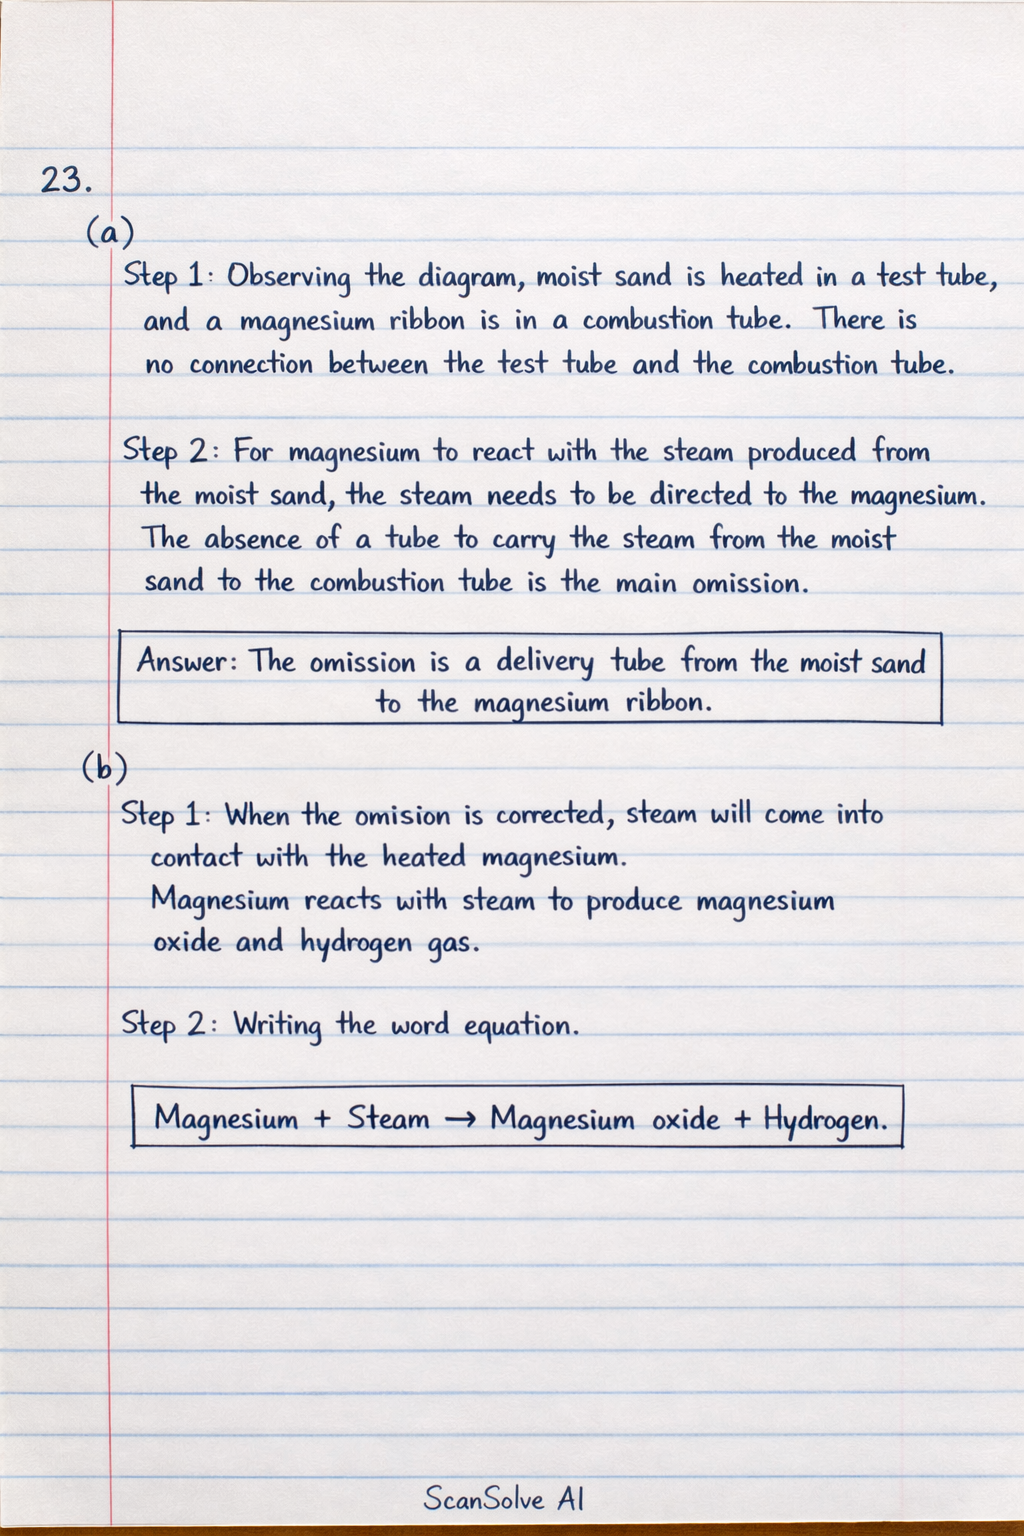 23.
(a)
Step 1: Observing the diagram, moist sand is heated in a test tube,
and a magnesium ribbon is in a combustion tube. There is
no connection between the test tube and the combustion tube.
Step 2: For magnesium to react with the steam produced from
the moist sand, the steam needs to be directed to the magnesium.
The absence of a tube to carry the steam from the moist
sand to the combustion tube is the main omission.
Answer: The omission is a delivery tube from the moist sand
to the magnesium ribbon.
(b)
Step 1: When the omision is corrected, steam will come into
contact with the heated magnesium.
Magnesium reacts with steam to produce magnesium
oxide and hydrogen gas.
Step 2: Writing the word equation.
Magnesium + Steam → Magnesium oxide + Hydrogen.
ScanSolve AI